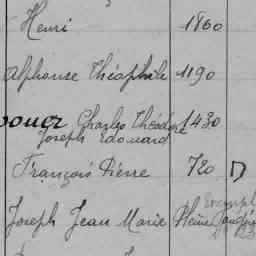 Henri 1860
Alphonse Théophile 1190
Charles Théodore 1430
Joseph Edouard
François Pierre 720 D
Joseph Jean Marie